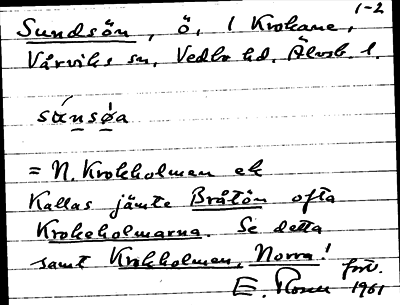 1-2
Sundsön, ö, i Krokane,
Vårviks sn, Vedbo hd. Älvsb. l.
sɯ́nsø̀a
= N. Krokholmen ek
Kallas jämte Bråtön ofta
Krokeholmarna. Se detta
samt Krokholmen, Norra!
fört.
E. Rosen 1961